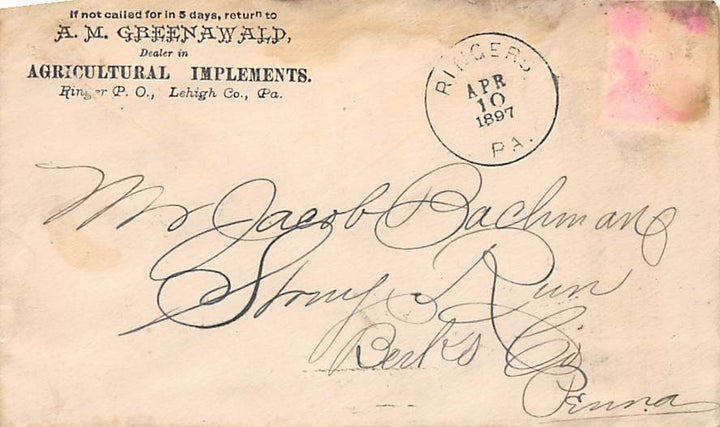 If not called for in 5 days, return to
A. M. GREENAWALD,
Dealer in
AGRICULTURAL IMPLEMENTS.
Ringer P. O., Lehigh Co., Pa.
RINGERS
APR
10
1897
PA.
Mr Jacob Bachman
Stony Run
Berks Co
Penna